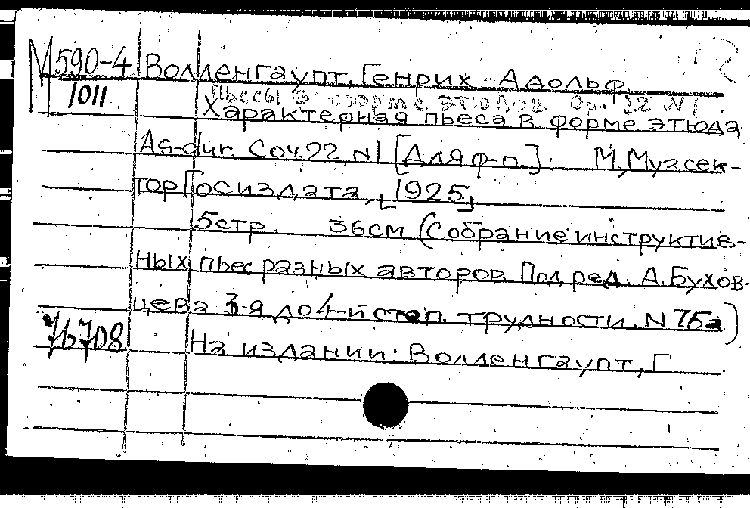 М590-4 Волленгаупт, Генрих-Адольф
1011 Пьесы в форме этюдов. Op. 22 N1
Характерная пьеса в форме этюда
As-dur. Соч 22 N1 [Для ф-п.]. М, Музсек-
тор Госиздата, [1925]
5стр. 36см (Собрание инструктив-
ных пьес разных авторов Под ред. А. Бухов-
цева 3-я до 4-й степ. трудности. N 75а)
76708 На издании: Волленгаупт, Г